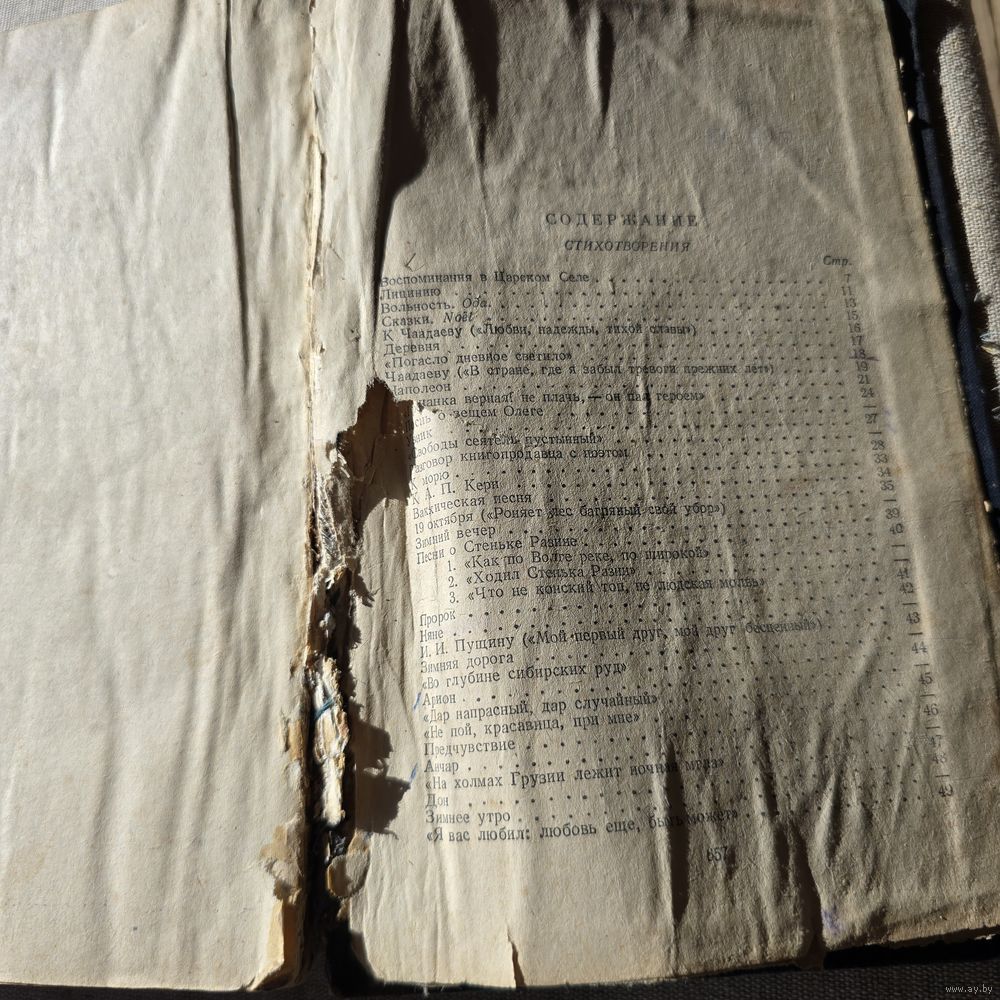 СОДЕРЖАНИЕ
СТИХОТВОРЕНИЯ
Стр.
Воспоминания в Царском Селе 7
Лицинию 11
Вольность. Ода. 13
Сказки. Noël 15
К Чаадаеву («Любви, надежды, тихой славы») 16
Деревня 17
«Погасло дневное светило» 18
Чаадаеву («В стране, где я забыл тревоги прежних лет») 19
Наполеон 21
чанка верная! не плачь, — он пал героем» 24
снь о вещем Олеге —
ник 27
вободы сеятель пустынный» —
азговор книгопродавца с поэтом 28
К морю 33
К А. П. Керн 34
Вакхическая песня 35
19 октября («Роняет лес багряный свой убор») —
Зимний вечер 39
Песни о Стеньке Разине 40
1. «Как по Волге реке, по широкой» —
2. «Ходил Стенька Разин» —
3. «Что не конский топ, не людская молвь» 41
Пророк 42
Няне —
И. И. Пущину («Мой первый друг, мой друг бесценный») 43
Зимняя дорога —
«Во глубине сибирских руд» 44
Арион —
«Дар напрасный, дар случайный» 45
«Не пой, красавица, при мне» —
Предчувствие 46
Анчар —
«На холмах Грузии лежит ночная мгла» 47
Дон 48
Зимнее утро —
«Я вас любил: любовь еще, быть может» 49
657
www.ay.by